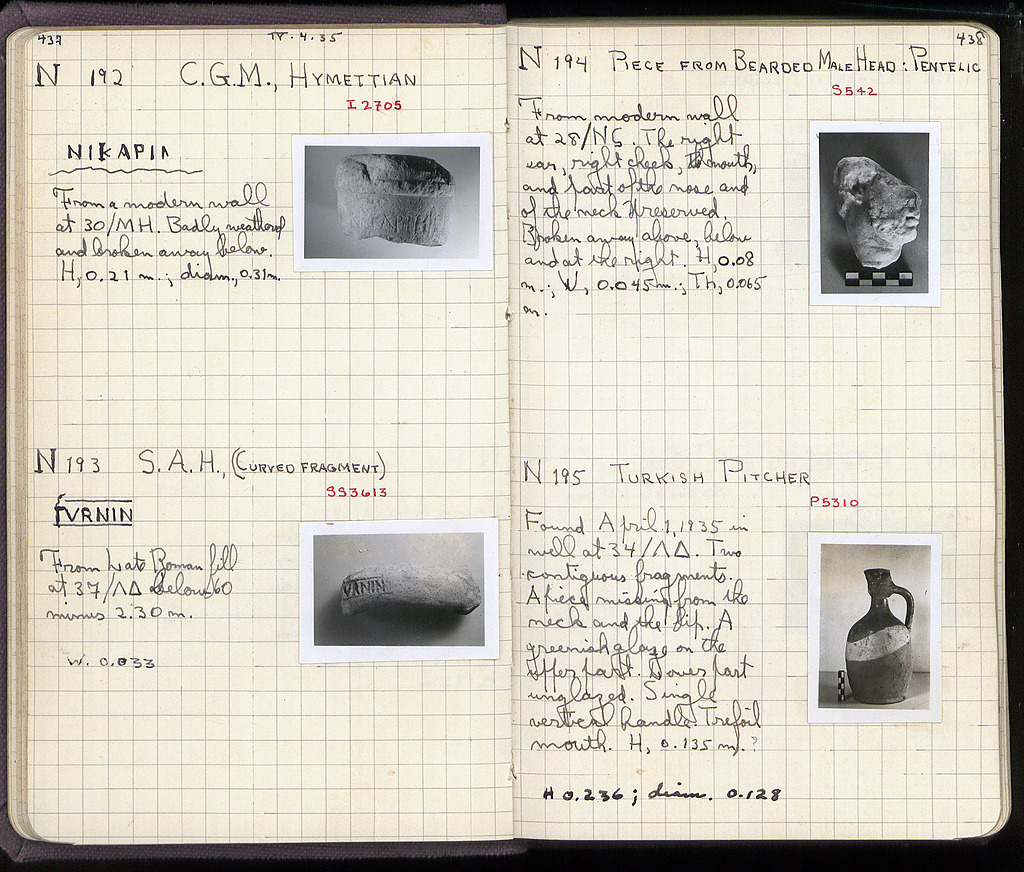 437
IV.4.35
N 192 C.G.M., HYMETTIAN
I 2705
ΝΙΚΑΡΙΑ
From a modern wall
at 30/ΜΗ. Badly weathered
and broken away below.
H, 0.21 m.; diam., 0.31 m.
N 193 S.A.H., (CURVED FRAGMENT)
SS3613
VRNIN
From Late Roman fill
at 37/ΛΔ below 60
minus 2.30 m.
W. 0.033
438
N 194 PIECE FROM BEARDED MALE HEAD: PENTELIC
S542
From modern wall
at 28/ΝϚ. The right
ear, right cheek, mouth,
and part of the nose and
of the neck preserved.
Broken away above, below
and at the right. H, 0.08
m.; W, 0.045 m.; Th, 0.065
m.
N 195 TURKISH PITCHER
P5310
Found April 1, 1935 in
well at 34/ΛΔ. Two
contiguous fragments.
A piece missing from the
neck and the lip. A
greenish glaze on the
upper part. Lower part
unglazed. Single
vertical handle. Trefoil
mouth. H, 0.135 m.?
H 0.236; diam. 0.128